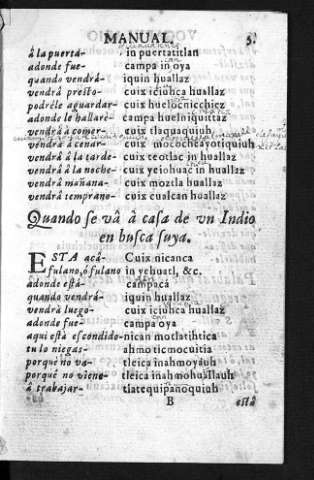 MANUAL. 5.
â la puerta- in puertatitlan
adonde fue- campa in oya
quando vendrá- iquin huallaz
vendrá presto- cuix iciuhca huallaz
podréle aguardar- cuix huelocnicchiez
adonde le hallarè- campa huelniquittaz
vendrà à comer- cuix tlaquaquiuh
vendrá à cenar- cuix mocochcayotiquiuh
vendrá â la tarde- cuix teotlac in huallaz
vendrá â la noche- cuix yeiohuac in huallaz
vendrá mañana- cuix moztla huallaz
vendrá temprano- cuix cualcan huallaz
Quando se vâ â casa de vn Indio
en busca suya.
ESTA acá- Cuix nicanca
fulano, ó fulano in yehuatl, &c.
adonde està- campaca
quando vendrá- iquin huallaz
vendrà luego- cuix iciuhca huallaz
adonde fue- campa oya
aqui està escondido- nican motlatihtica
tu lo niegas- ahmo ticmocuitia
porquè no va- tleica inahmoyauh
porquè no viene- tleica inahmohuallauh
â trabajar- tlatequipanoquiuh
B está